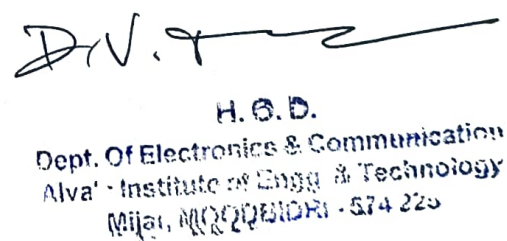 D.V.
H. O. D.
Dept. Of Electronics & Communication
Alva' Institute of Engg & Technology
Mijar, - 574 225